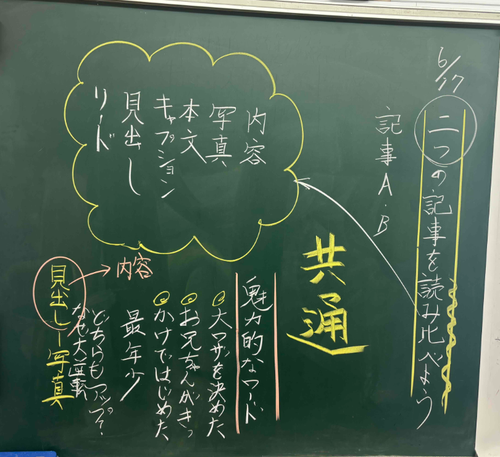 6/17
二つの記事を読み比べよう
記事A・B
共通
内容
写真
本文
キャプション
見出し
リード
魅力的なワード
大ワザを決めた
お兄ちゃんがきっ
かけではじめた
最年少
どちらもアップ?
なぜ大逆転
見出しー写真
内容